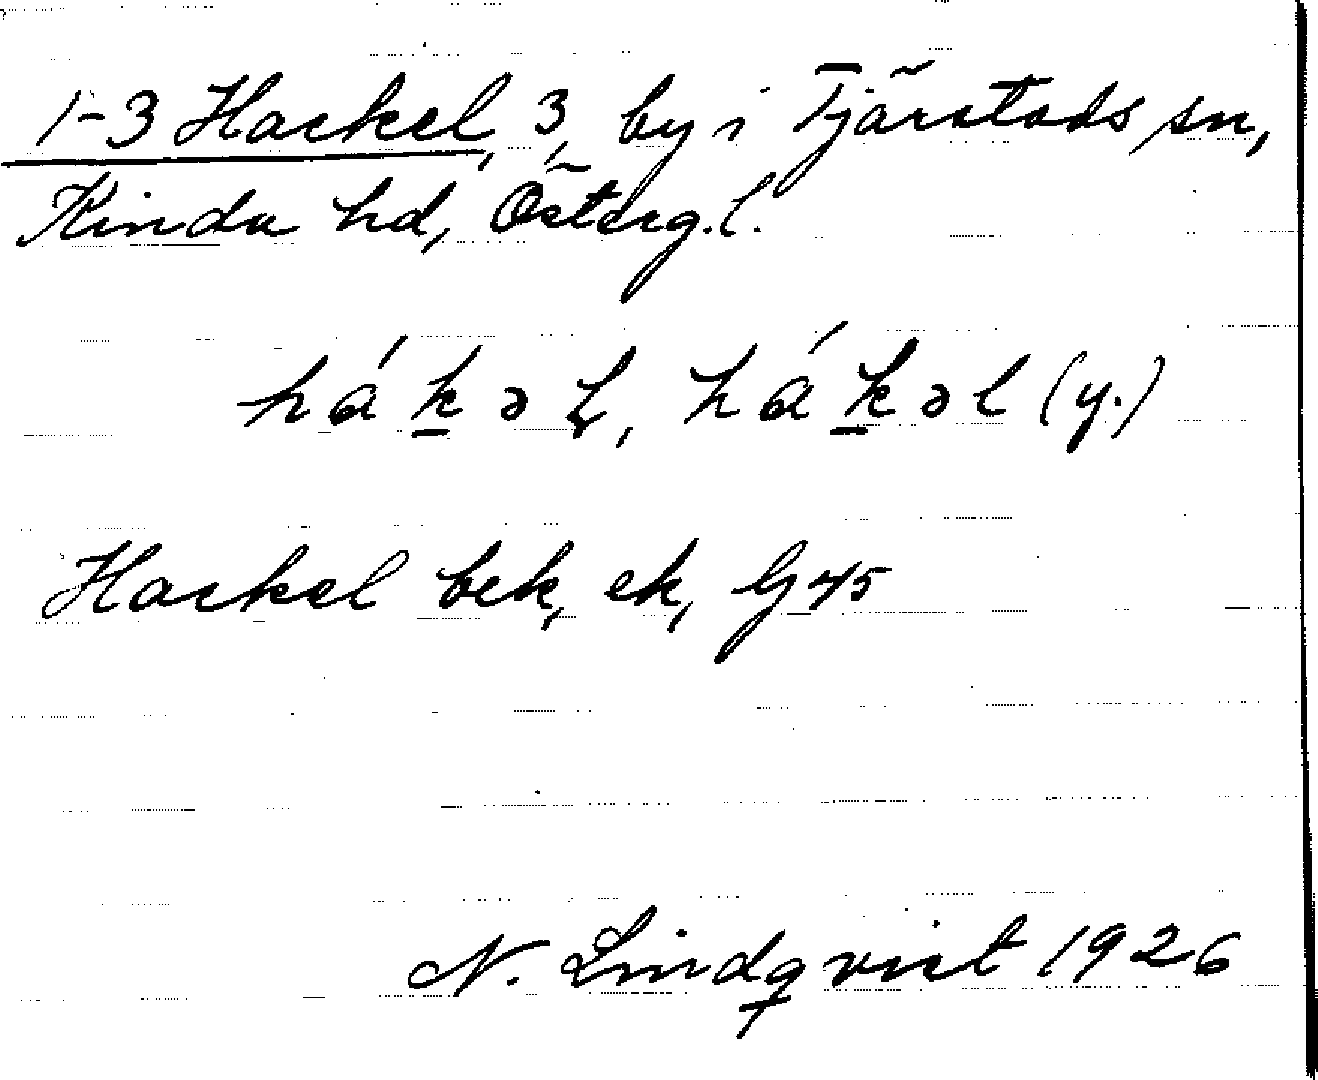 1-3 Hackel, 3, by i Tjärstads sn,
Kinda hd, Österg.l.
hák̲əɬ, hák̲əl (y.)
Hackel bek, ek, G 45
N. Lindqvist 1926